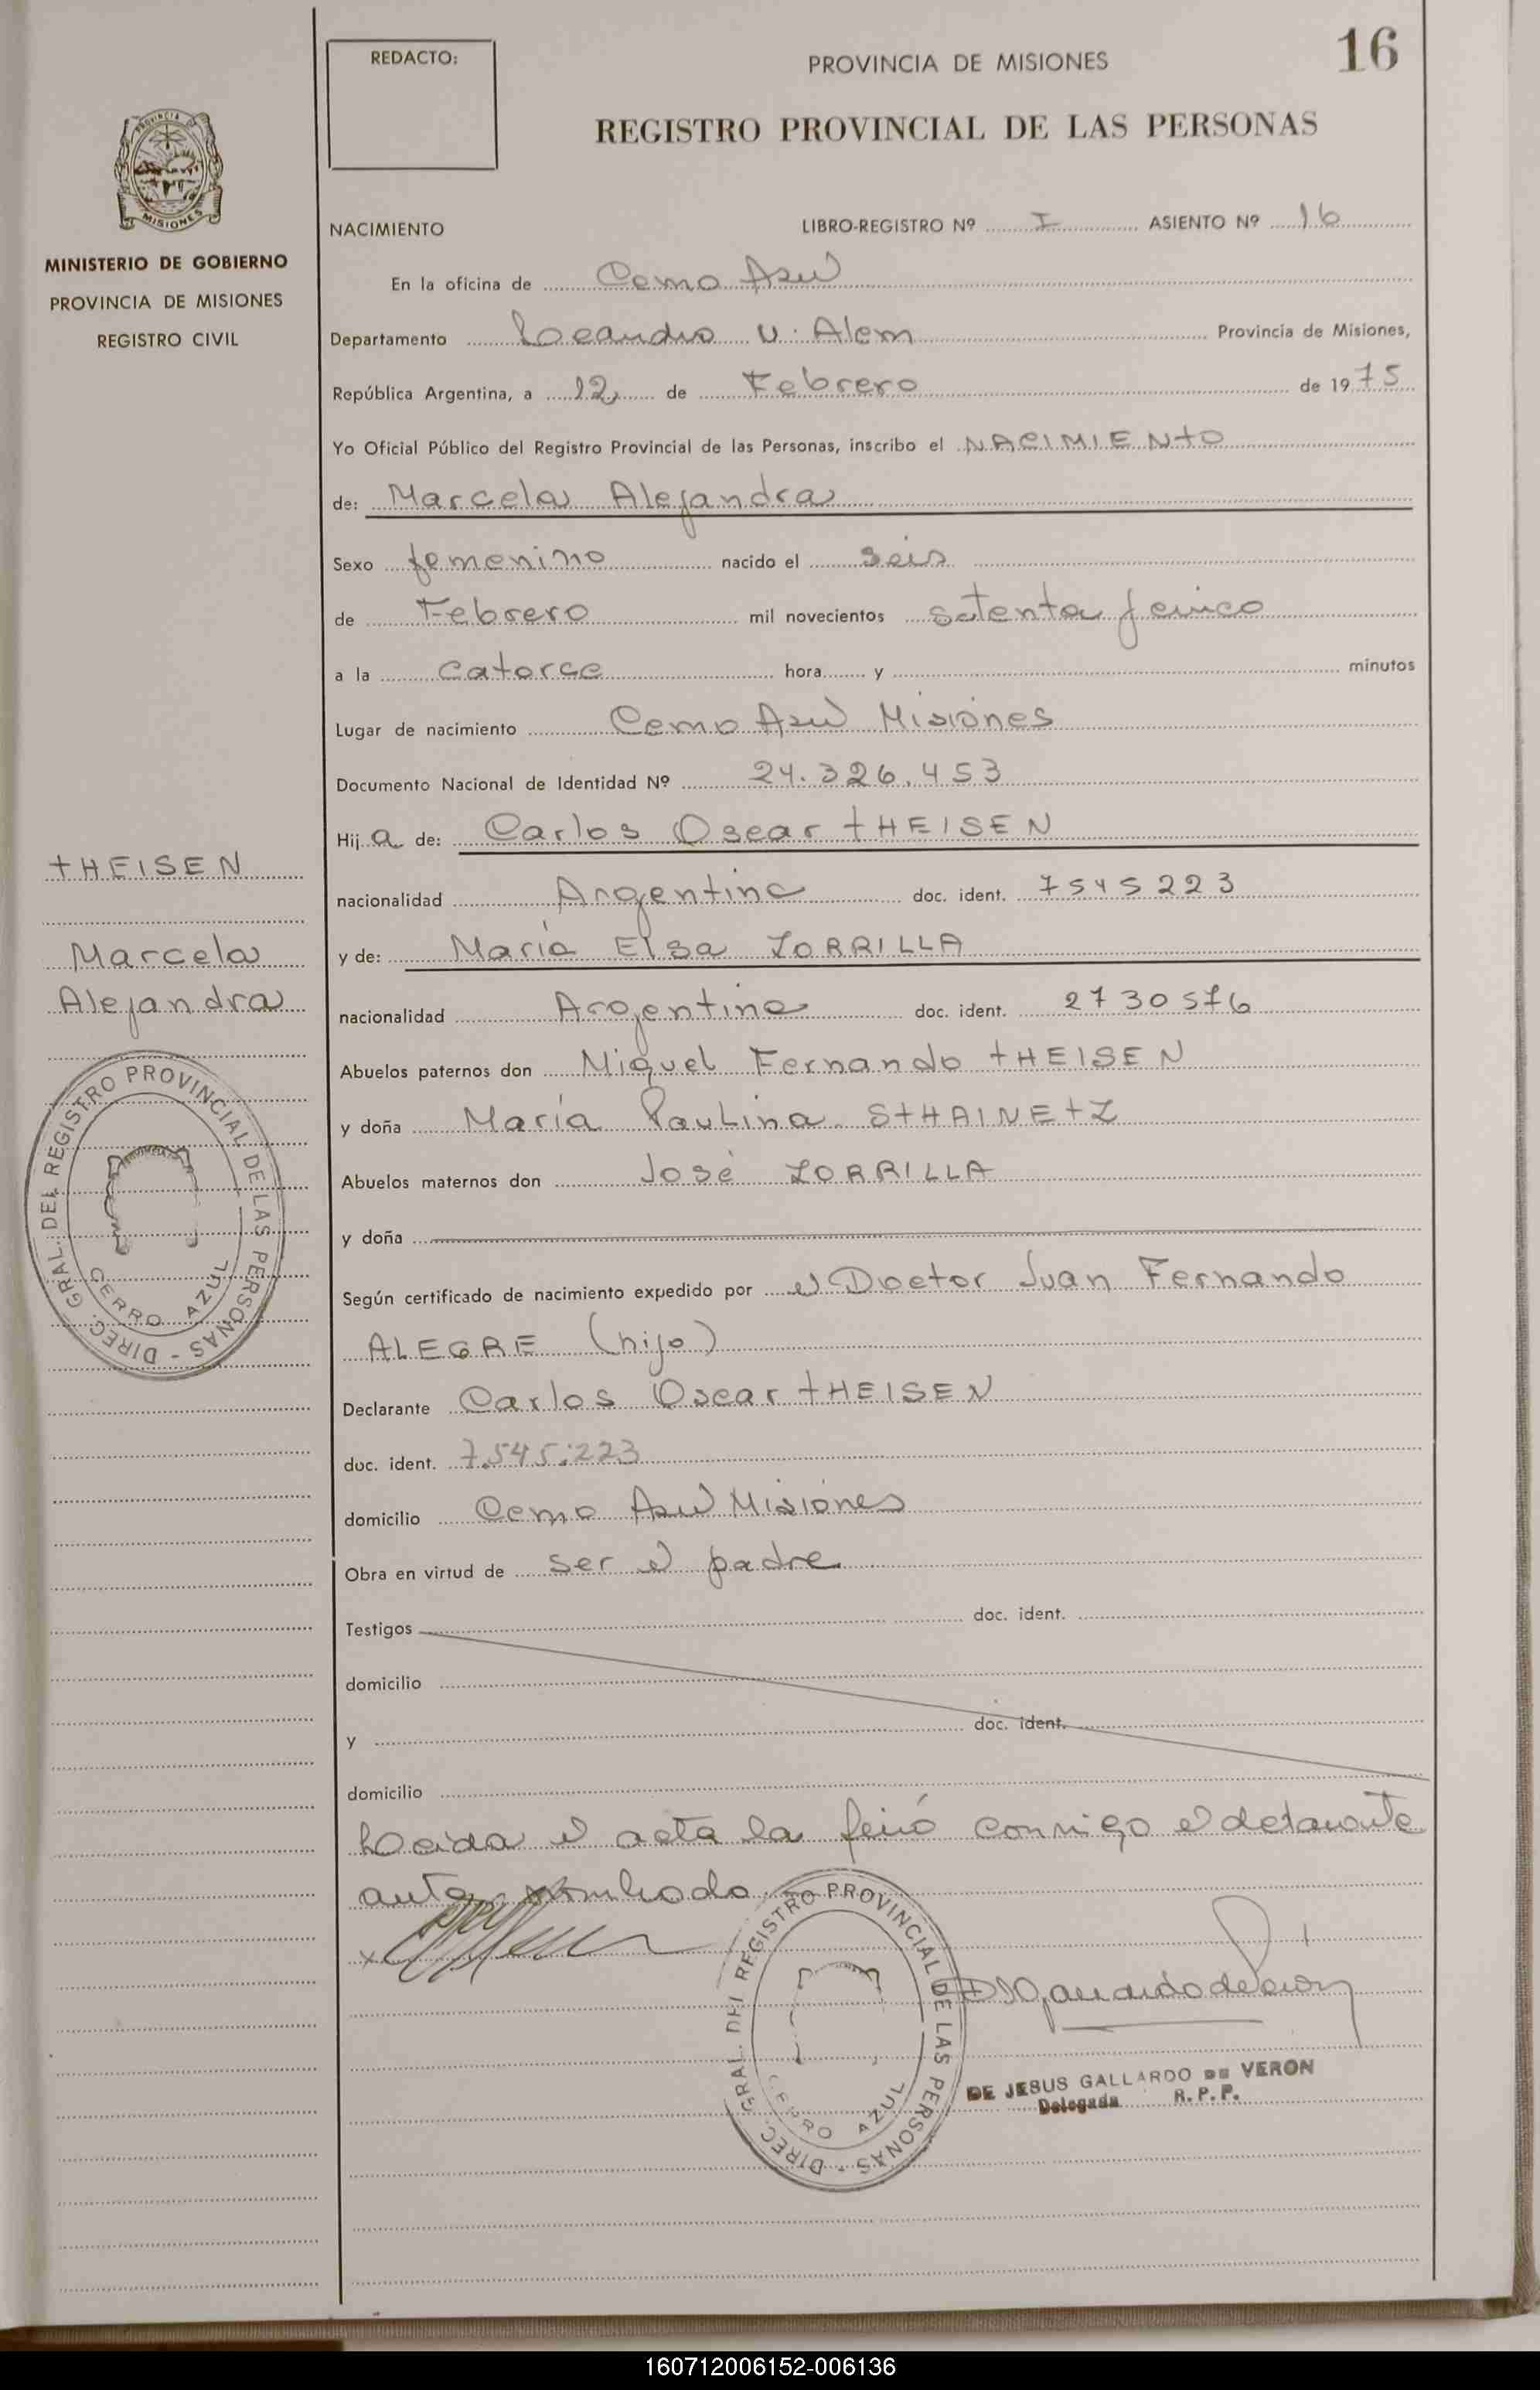 REDACTO:
PROVINCIA DE MISIONES
16
REGISTRO PROVINCIAL DE LAS PERSONAS
PROVINCIA DE
MISIONES
MINISTERIO DE GOBIERNO
PROVINCIA DE MISIONES
REGISTRO CIVIL
NACIMIENTO LIBRO-REGISTRO Nº I ASIENTO Nº 16
En la oficina de Cerro Azul
Departamento Leandro N. Alem Provincia de Misiones,
República Argentina, a 12 de Febrero de 1975
Yo Oficial Público del Registro Provincial de las Personas, inscribo el NACIMIENTO
de: Marcela Alejandra
Sexo femenino nacido el seis
de Febrero mil novecientos setenta y cinco
a la catorce hora y minutos
Lugar de nacimiento Cerro Azul Misiones
Documento Nacional de Identidad Nº 24.326.453
Hija de: Carlos Oscar THEISEN
nacionalidad Argentina doc. ident. 7545223
y de: María Elsa ZORRILLA
nacionalidad Argentina doc. ident. 2730576
Abuelos paternos don Miguel Fernando THEISEN
y doña María Paulina STHAINETZ
Abuelos maternos don José ZORRILLA
y doña
Según certificado de nacimiento expedido por el Doctor Juan Fernando
ALEGRE (hijo)
Declarante Carlos Oscar THEISEN
doc. ident. 7.545.223
domicilio Cerro Azul Misiones
Obra en virtud de ser el padre
Testigos doc. ident.
domicilio
y doc. ident.
domicilio
Leida el acta la firmó conmigo el declarante
ante nombrado
THEISEN
Marcela
Alejandra
DIREC. GRAL. DEL REGISTRO PROVINCIAL DE LAS PERSONAS -
CERRO AZUL
DIREC. GRAL. DEL REGISTRO PROVINCIAL DE LAS PERSONAS -
CERRO AZUL
DE JESUS GALLARDO DE VERON
Delegada R. P. P.
160712006152-006136